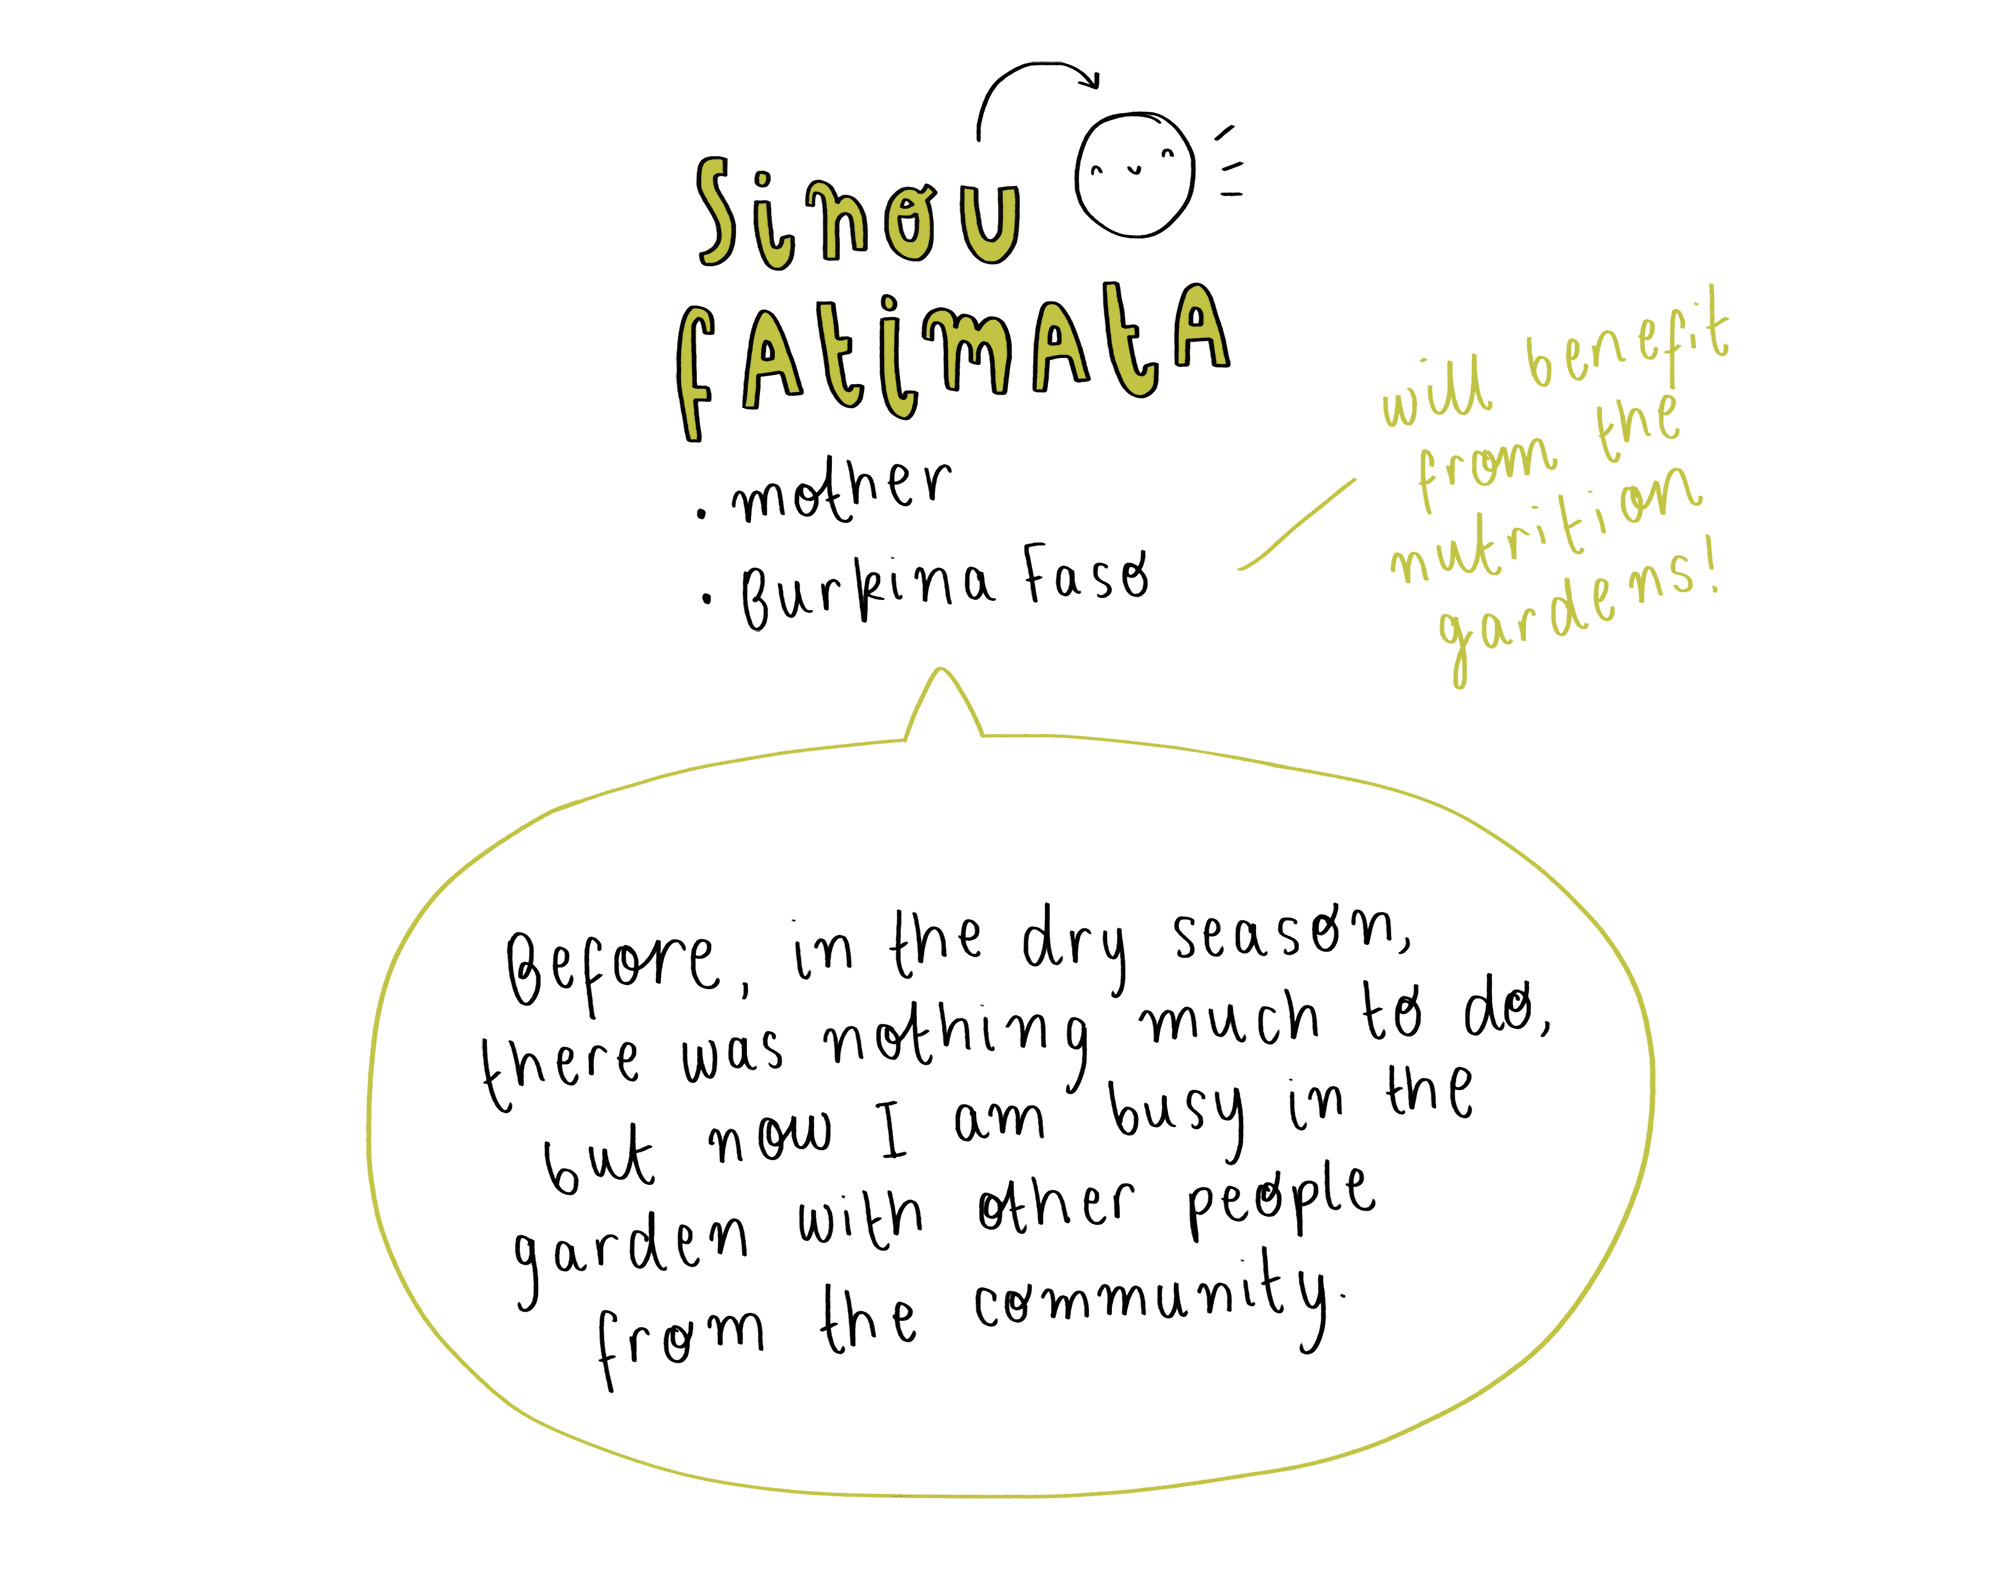 Sinou
fAtimAtA
• mother
• Burkina Faso
will benefit
from the
nutrition
gardens!
Before, in the dry season,
there was nothing much to do,
but now I am busy in the
garden with other people
from the community.